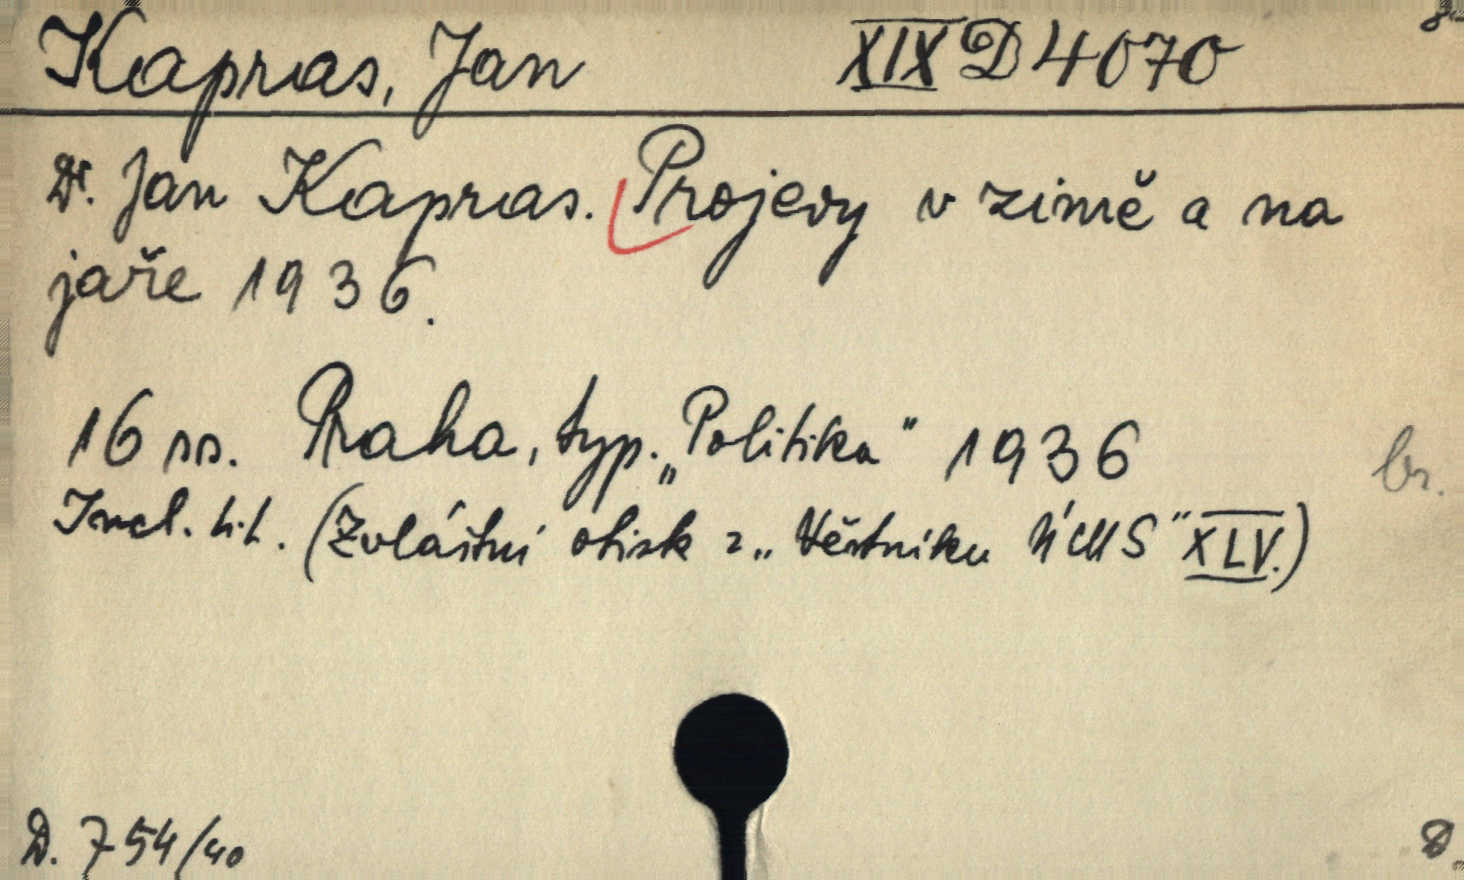 Kapras, Jan XIX D 4070
Dr. Jan Kapras. Projevy v zimě a na
jaře 1936.
16 ss. Praha, typ. „Politika" 1936 br.
Incl. t.t. (Zvláštní otisk z „Věstníku ÚČMS" XLV.)
D. 754/40 D.